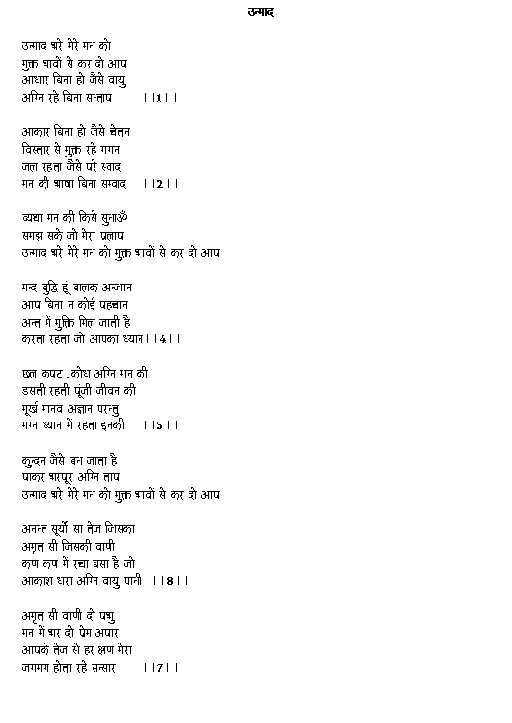 उन्माद
उन्माद भरे मेरे मन को
मुक्त भावों से कर दो आप
आधार बिना हो जैसे वायु
अग्नि रहे बिना सन्ताप ||1||
आकार बिना हो जैसे चेतन
विस्तार से मुक्त रहे गगन
जल रहता जैसे परे स्वाद
मन की भाषा बिना सम्वाद ||2||
व्यथा मन की किसे सुनाॐ
समझ सके जो मेरा प्रलाप
उन्माद भरे मेरे मन को मुक्त भावों से कर दो आप
मन्द बुद्धि हूं बालक अन्जान
आप बिना न कोई पहचान
अन्त में मुक्ति मिल जाती है
करता रहता जो आपका ध्यान||4||
छल कपट .क्रोध अग्नि मन की
डसती रहती पूंजी जीवन की
मूर्ख मानव अज्ञान परन्तु
मग्न ध्यान में रहता इनकी ||5||
कुन्दन जैसे बन जाता है
पाकर भरपूर अग्नि ताप
उन्माद भरे मेरे मन को मुक्त भावों से कर दो आप
अनन्त सूर्यो सा तेज जिसका
अमृत सी जिसकी वाणी
कण कण में रचा बसा है जो
आकाश धरा अग्नि वायु पानी ||8||
अमृत सी वाणी दो प्रभु
मन में भर दो प्रेम अपार
आपके तेज से हर क्षण मेरा
जगमग होता रहे सन्सार ||7||